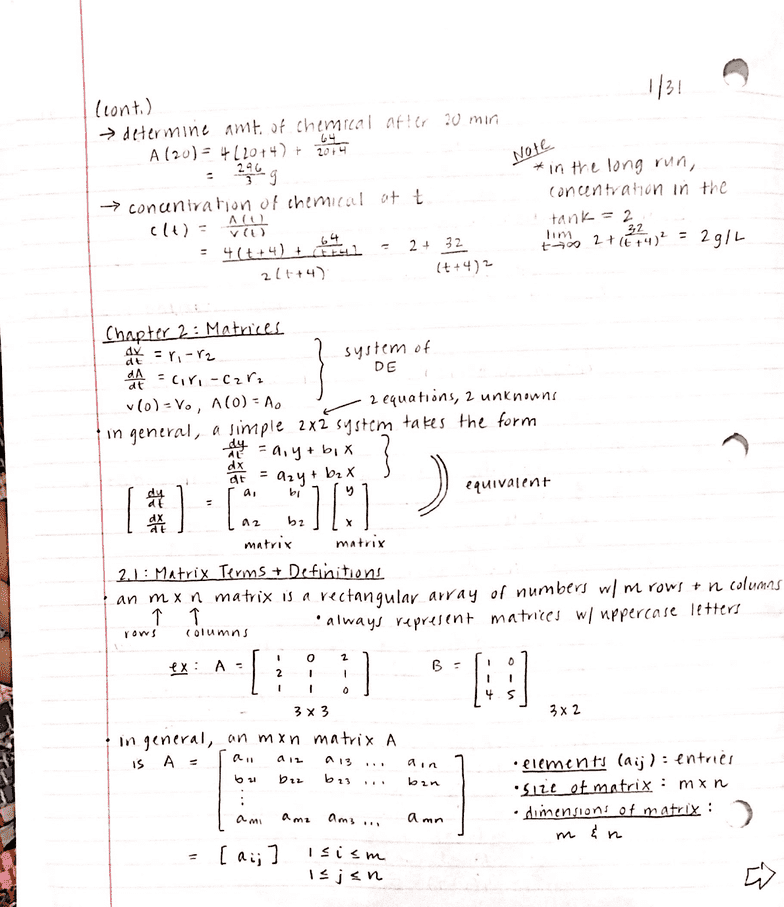 1/31
(cont.)
→ determine amt. of chemical after 20 min
A(20) = 4(20+4) + 64/(20+4)
= 296/3 g
Note
* in the long run,
concentration in the
tank = 2
lim t→∞ 2 + 32/(t+4)² = 2g/L
→ concentration of chemical at t
c(t) = A(t)/v(t)
= (4(t+4) + 64/(t+4))/(2(t+4)) = 2 + 32/(t+4)²
Chapter 2: Matrices
dv/dt = r₁ - r₂
dA/dt = c₁r₁ - c₂r₂
v(0) = V₀, A(0) = A₀
system of
DE
2 equations, 2 unknowns
• in general, a simple 2x2 system takes the form
dy/dt = a₁y + b₁x
dx/dt = a₂y + b₂x
equivalent
[dy/dt] = [a₁ b₁] [y]
[dx/dt] [a₂ b₂] [x]
matrix matrix
2.1: Matrix Terms + Definitions
• an m x n matrix is a rectangular array of numbers w/ m rows + n columns
↑ ↑
rows columns
• always represent matrices w/ uppercase letters
ex: A = [1 0 2
2 1 1
1 1 0]
3 x 3
B = [1 0
1 1
4 5]
3 x 2
• in general, an mxn matrix A
is A = [a₁₁ a₁₂ a₁₃ ... a₁ₙ
b₂₁ b₂₂ b₂₃ ... b₂ₙ
⋮
aₘ₁ aₘ₂ aₘ₃ ... aₘₙ]
= [aᵢⱼ] 1 ≤ i ≤ m
1 ≤ j ≤ n
• elements (aij) : entries
• size of matrix : m x n
• dimensions of matrix :
m & n
⇨